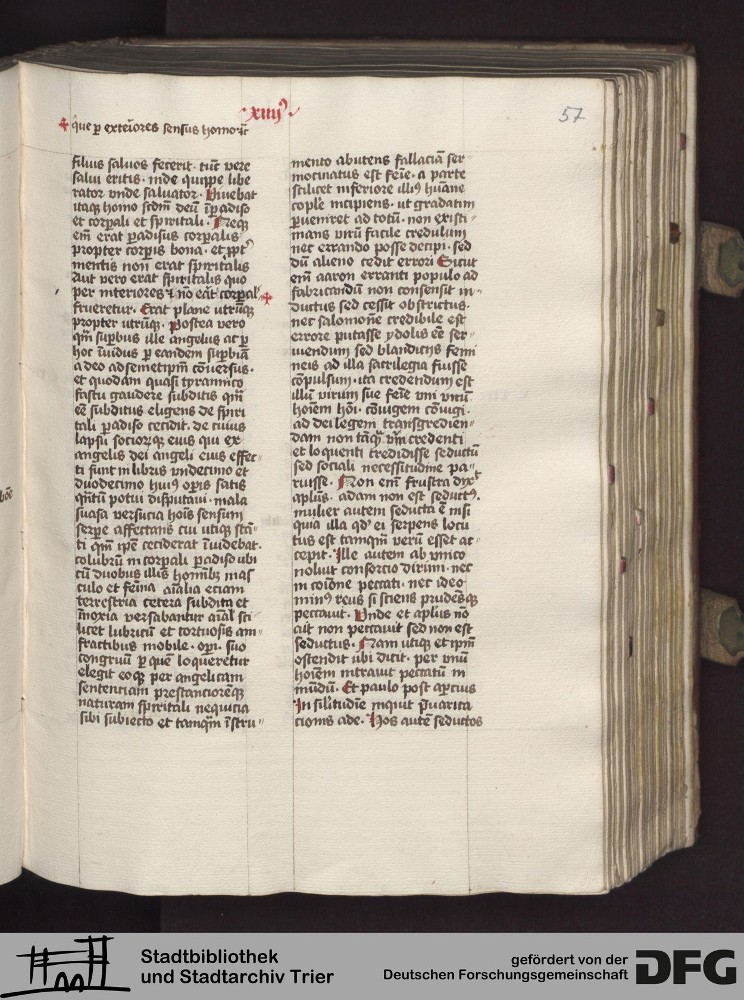 xiiij⁹
57
✢ que p̱ exteriores sensus homo ⁊c̄
filius saluos fecerit. tūc vere
salui eritis. inde quippe libe
rator vnde saluator. Viuebat
itaq̨ homo scdm̄ deū ī p̱adiso
et corp̱ali et spiritali. Neq̨
em̄ erat p̱adisus corp̱alis
propter corp̱is bona. et ppt̄
mentis non erat spiritalis
Aut vero erat spiritalis quo
per interiores ⁊ nō eāt corp̱al' ✢
frueretur. Erat plane utrūq̨
propter utrūq̨. Postea vero
qm̄ sup̱bus ille angelus ac p̱
hoc īuidus p̱ eandem sup̱biā
a deo ad semetip̄m cōuersus.
et quodam quasi tyrannico
fastu gaudere subditis qm̄
eē subditus eligens de spiri
tali p̱adiso cecidit. de cuius
lapsu sociorūq̨ eius qui ex
angelis dei angeli eius effec-
ti sunt in libris vndecimo et
duodecimo huiꝰ op̱is satis
qn̄tū potui disputaui. mala
suasa versucia hoīs sensum
serpe affectans cui utiq̨ stā-
ti qm̄ ip̄e ceciderat īuidebat.
colubrū in corp̱ali p̱adiso ubi
cū duobus illis homib̨ mas
culo et feīna aīalia eciam
terrestria cetera subdita et
īnoxia versabantur aīal sci
licet lubricū et tortuosis am-
fractibus mobile. op̱i suo
congruū p̱ quē loqueretur
elegit eoq̨ per angelicam
sentenciam prestancioremq̨
naturam spiritali nequicia
sibi subiecto et tamq̄m īstru-
mento abutens fallaciā ser-
mocinatus est feīe. a parte
scilicet inferiore illiꝰ huāne
cople incipiens. ut gradatim
p̱ueniret ad totū. non existi-
mans virū facile credulum
nec errando posse decipi. sed
dū alieno cedit errori Sicut
em̄ aaron erranti populo ad
fabricandū non consensit in-
ductus sed cessit obstrictus.
nec salomonē credibile est
errore putasse ydolis eē ser-
uiendum sed blandicijs femi
neis ad illa sacrilegia fuisse
cōpulsum. ita credendum est
illū virum sue feīe vni vnū
hoīem hōi. cōiugem cōiugi.
ad dei legem transgredien-
dam non tāq̄ vm̄ credenti
et loquenti credidisse seductū
sed sociali necessitudine pa-
ruisse. Non em̄ frustra dixᵗ
apl̄us. adam non est seductꝰ.
mulier autem seducta ē nisi
quia illa qd' ei serpens locu
tus est tamquam verū esset ac-
cepit. Ille autem ab vnico
noluit consorcio dirimi. nec
in cōiōne peccati. nec ideo
minꝰ reus si sciens prudēsq̨
peccauit. Vnde et apl̄us nō
ait non peccauit sed non est
seductus. Nam utiq̨ et ip̄m
ostendit ubi dicit. per vnū
hoīem intrauit peccatū in
mūdū. Et paulo post ap̱cius
In sil̄itudīe inquit p̱uarica
cionis ade. Hos autē seductos
Stadtbibliothek
und Stadtarchiv Trier
gefördert von der
Deutschen Forschungsgemeinschaft
DFG